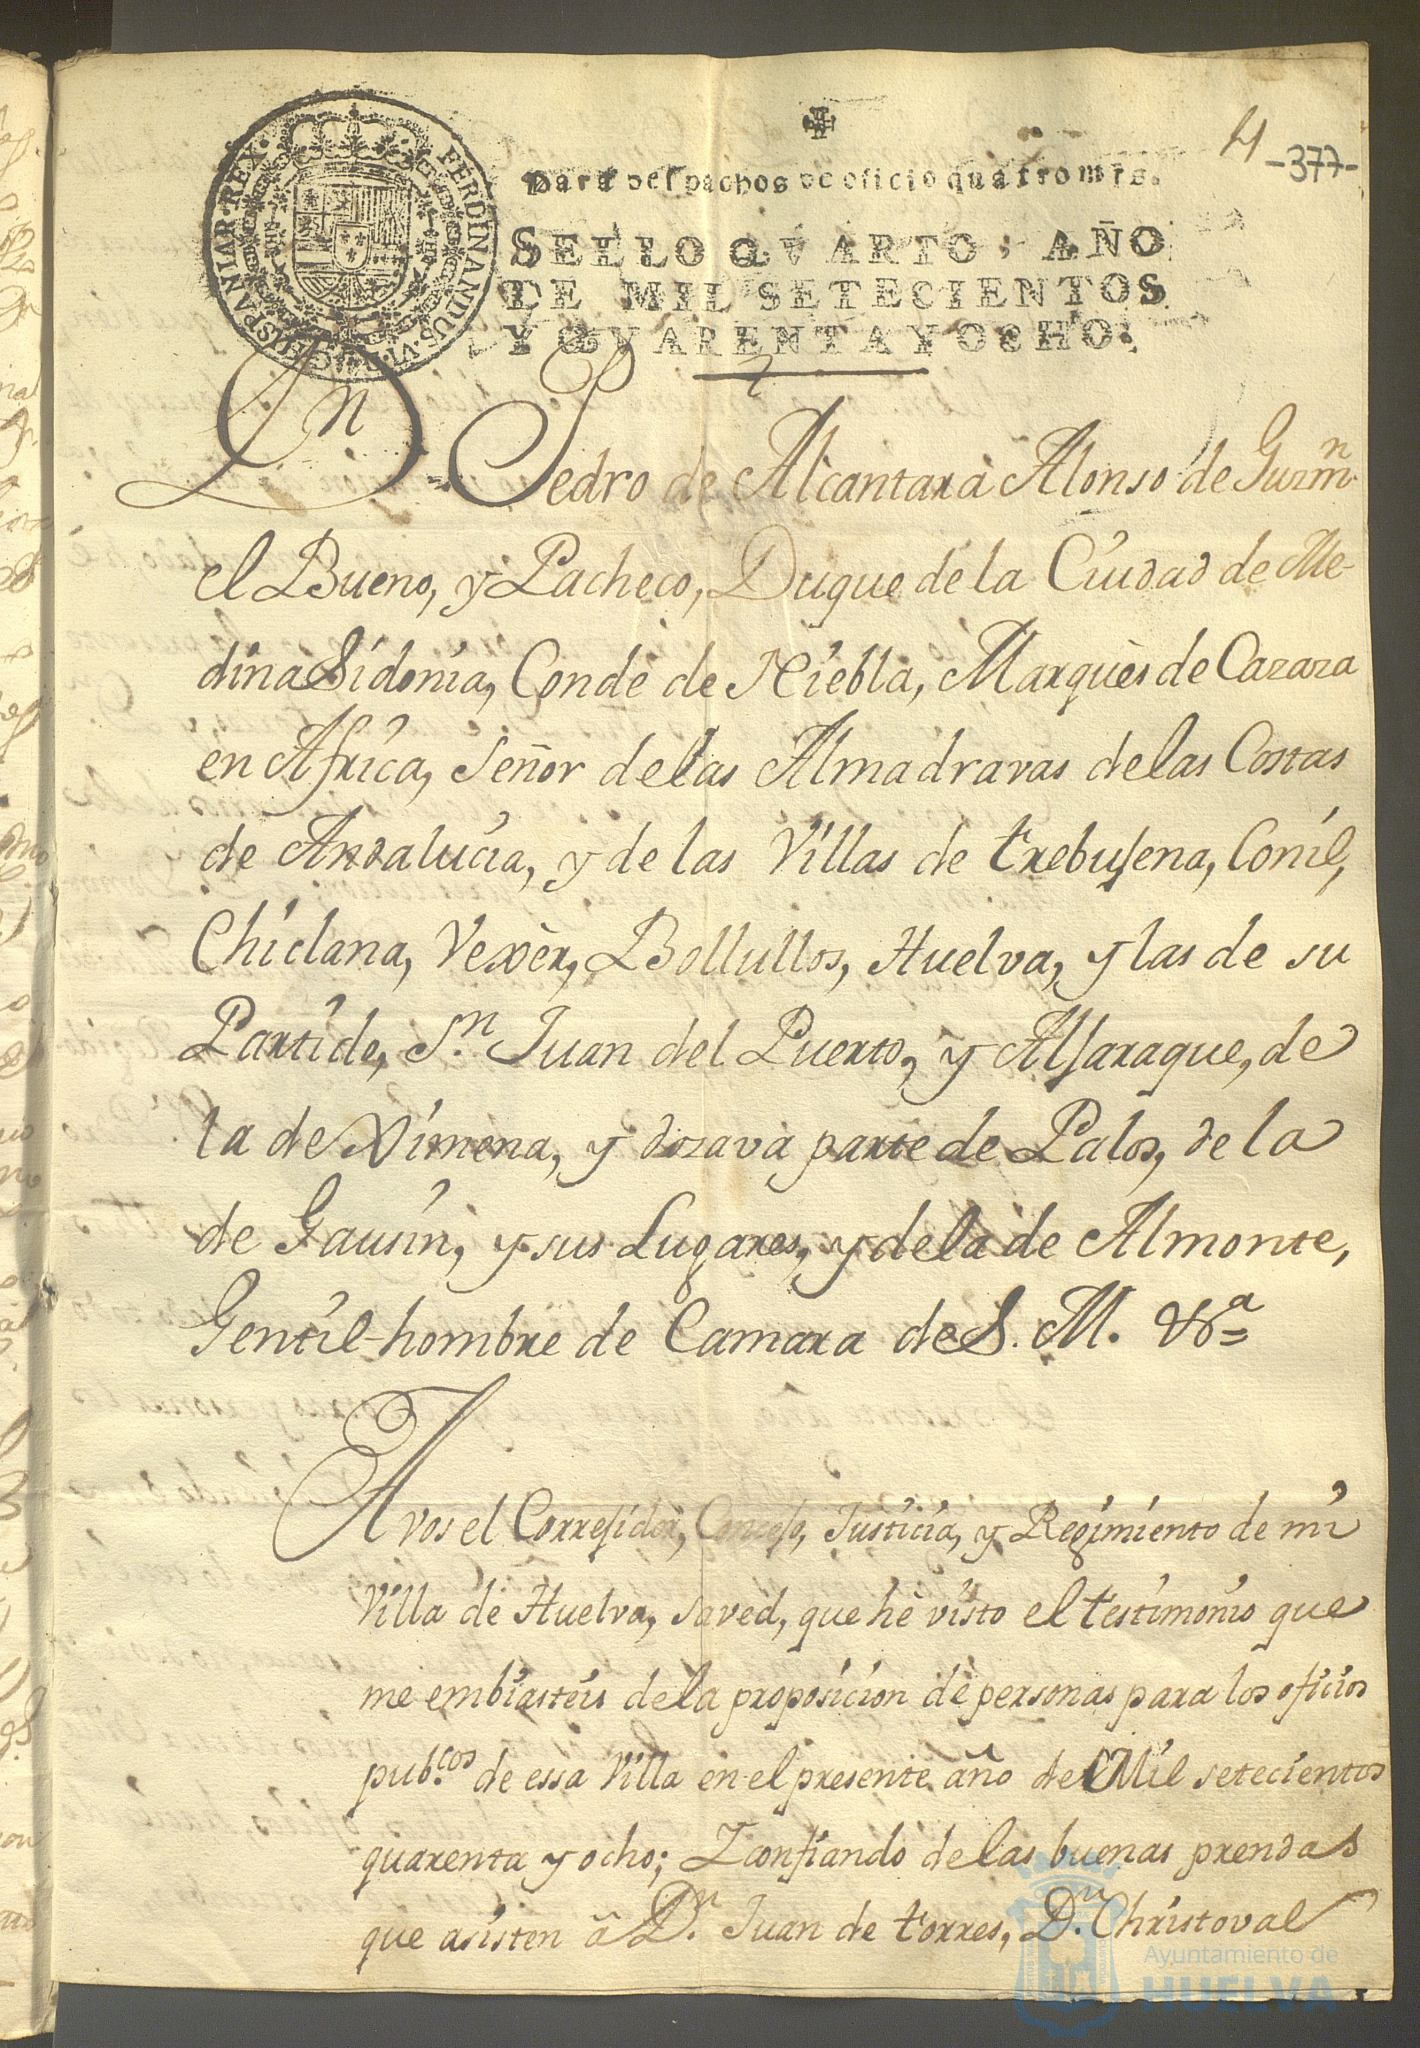 FERDINANDUS·VI·D·G·HISPANIAR·REX·
4
-377-
Para despachos de oficio quatro mrs.
SELLO QVARTO, AÑO
DE MIL SETECIENTOS
Y QVARENTA Y OCHO.
Dn Pedro de Alcantara Alonso de Guzmn.
el Bueno, y Pacheco, Duque de la Ciudad de Me-
dina Sidonia, Conde de Niebla, Marquès de Cazaza
en Africa, Señor de las Almadravas de las Costas
de Andalucia, y de las Villas de trebujena, Conil,
Chiclana, Vexèr, Bollullos, Huelva, y las de su
Partido, Sn. Juan del Puerto, y Aljaraque, de
la de Ximena, y dozava parte de Palos, de la
de Gausin, y sus Lugares, y de la de Almonte,
Gentil-hombre de Camara de S. M. &a
A vos el Correjidor, Concejo, Justicia, y Regimiento de mi
Villa de Huelva, saved, que hè visto el testimonio que
me embiasteis de la proposicion de personas para los oficios
pub.cos de essa Villa en el presente año de Mil setecientos
quarenta y ocho; Y confiando de las buenas prendas
que asisten â Dn. Juan de torres, Dn. Christoval
Ayuntamiento de
HUELVA